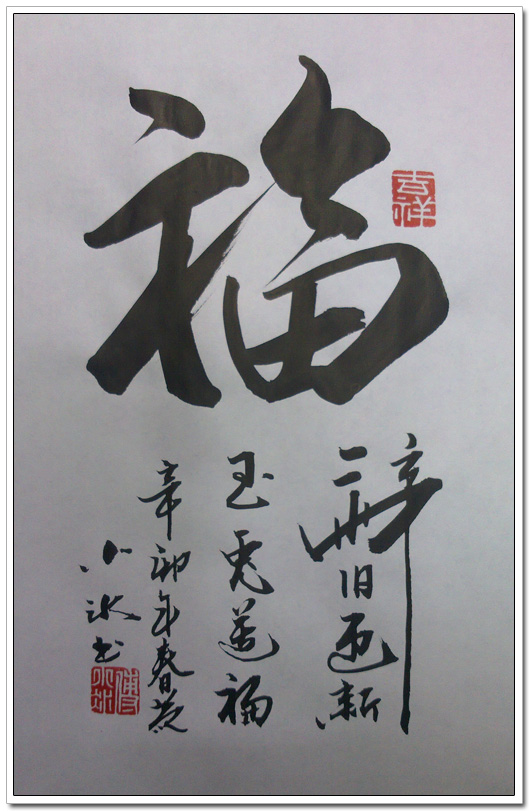 福
吉祥
辭旧迎新
玉兔送福
辛卯年春
小冰书
傅小冰